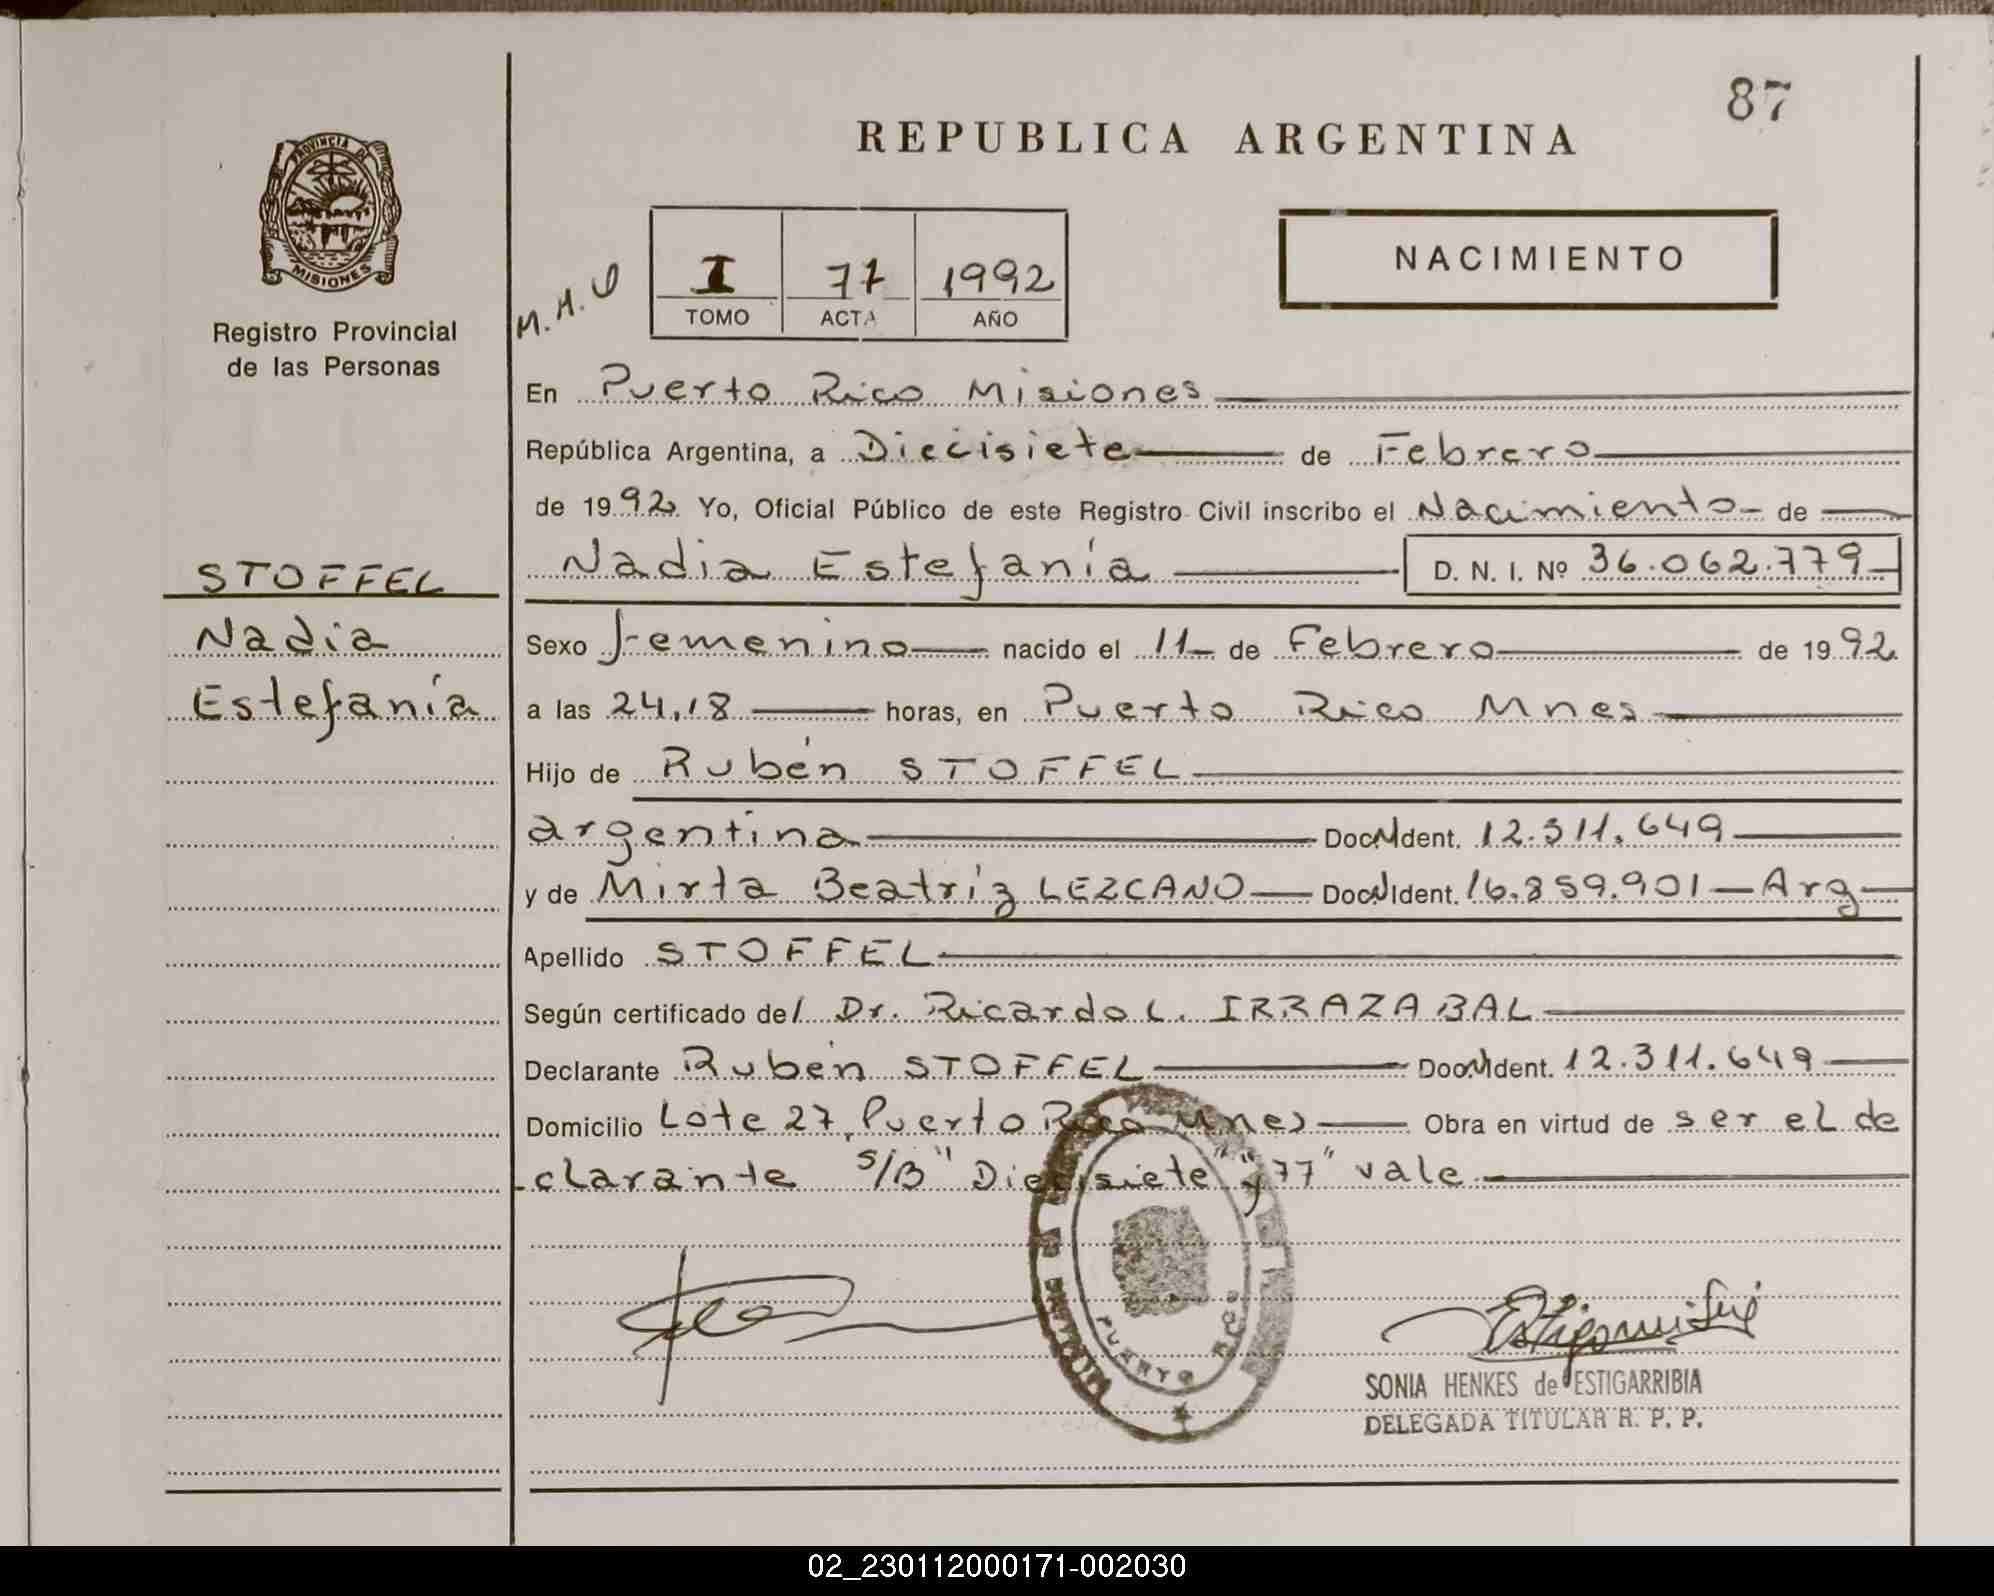 87
REPUBLICA ARGENTINA
PROVINCIA DE
MISIONES
Registro Provincial
de las Personas
M.H.U
I 77 1992
TOMO ACTA AÑO
NACIMIENTO
En Puerto Rico Misiones
República Argentina, a Diecisiete de Febrero
de 1992 Yo, Oficial Público de este Registro Civil inscribo el Nacimiento de
Nadia Estefanía D. N. I. Nº 36.062.779
STOFFEL
Nadia
Estefanía
Sexo Femenino nacido el 11 de Febrero de 1992
a las 24,18 horas, en Puerto Rico Mnes
Hijo de Rubén STOFFEL
argentina Doc Ident. 12.311.649
y de Mirta Beatríz LEZCANO Doc Ident. 16.859.901 - Arg
Apellido STOFFEL
Según certificado del Dr. Ricardo L. IRRAZABAL
Declarante Rubén STOFFEL Doc Ident. 12.311.649
Domicilio Lote 27, Puerto Rico Mnes Obra en virtud de ser el de
clarante s/B "Diecisiete" y "77" vale
PUERTO RICO
SONIA HENKES de ESTIGARRIBIA
DELEGADA TITULAR R. P. P.
02_230112000171-002030